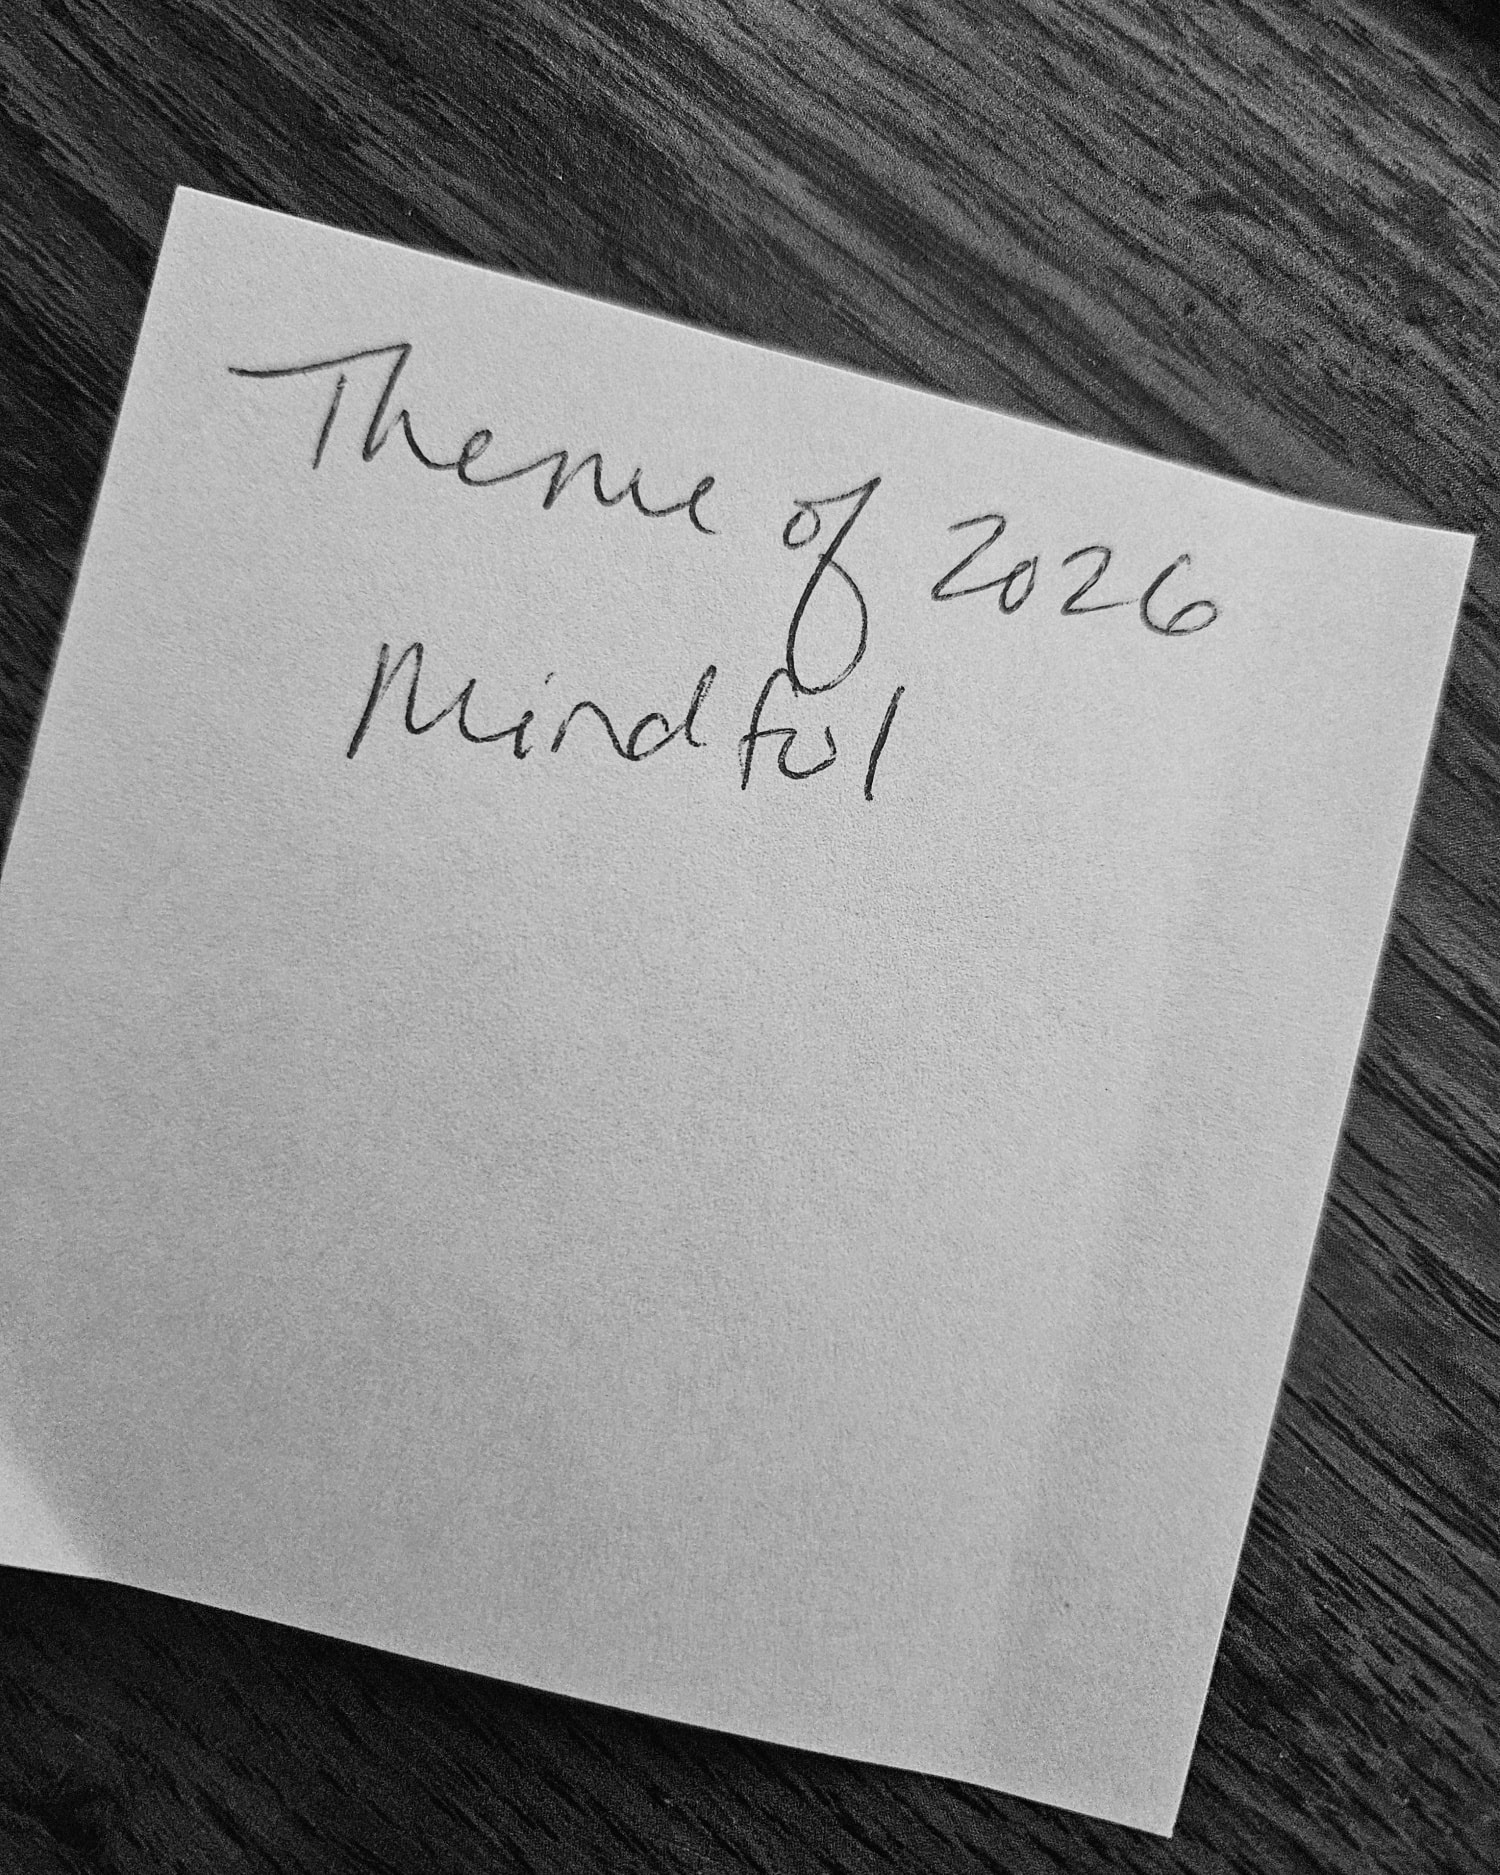 Theme of 2026
Mindful